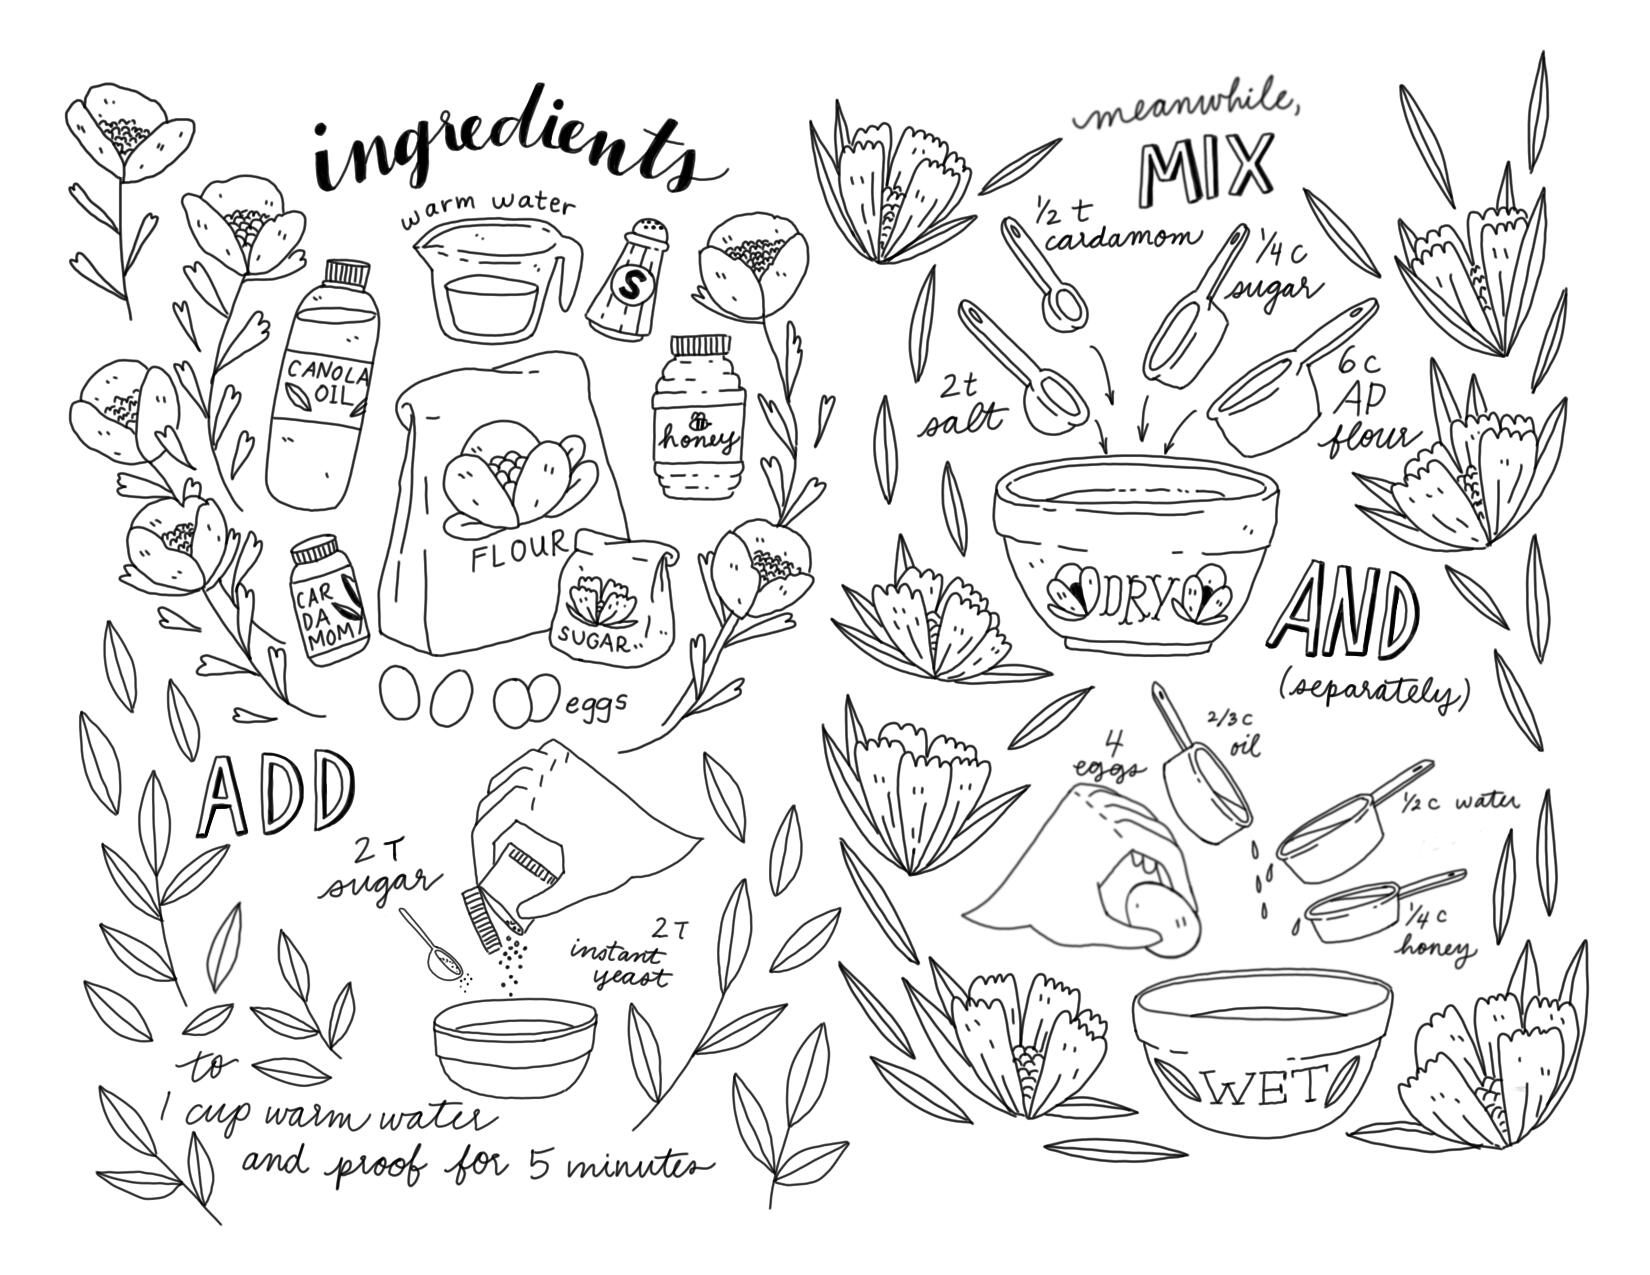 ingredients
warm water
S
CANOLA
OIL
honey
FLOUR
CAR
DA
MOM
SUGAR
eggs
ADD
2 T
sugar
2 T
instant
yeast
to
1 cup warm water
and proof for 5 minutes
meanwhile,
MIX
1/2 t
cardamom
1/4 c
sugar
2 t
salt
6 c
AP
flour
DRY
AND
(separately)
4
eggs
2/3 c
oil
1/2 c water
1/4 c
honey
WET